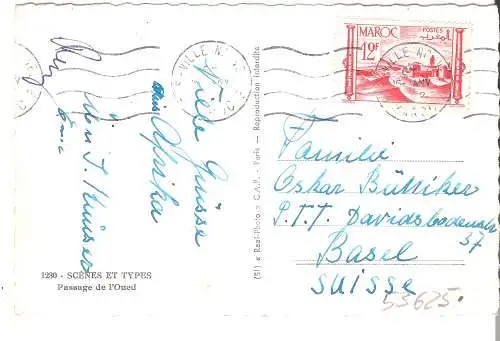 MAROC
POSTES
12F
VILLE NO
Viele Grüsse
Afrika
1230 - SCÈNES ET TYPES
Passage de l'Oued
(51) « Real-Photo » C.A.P. - Paris — Reproduction interdite
Familie
Oskar Büttiker
P.T.T. Davidsbodenstr
37
Basel
SUISSE
53625.